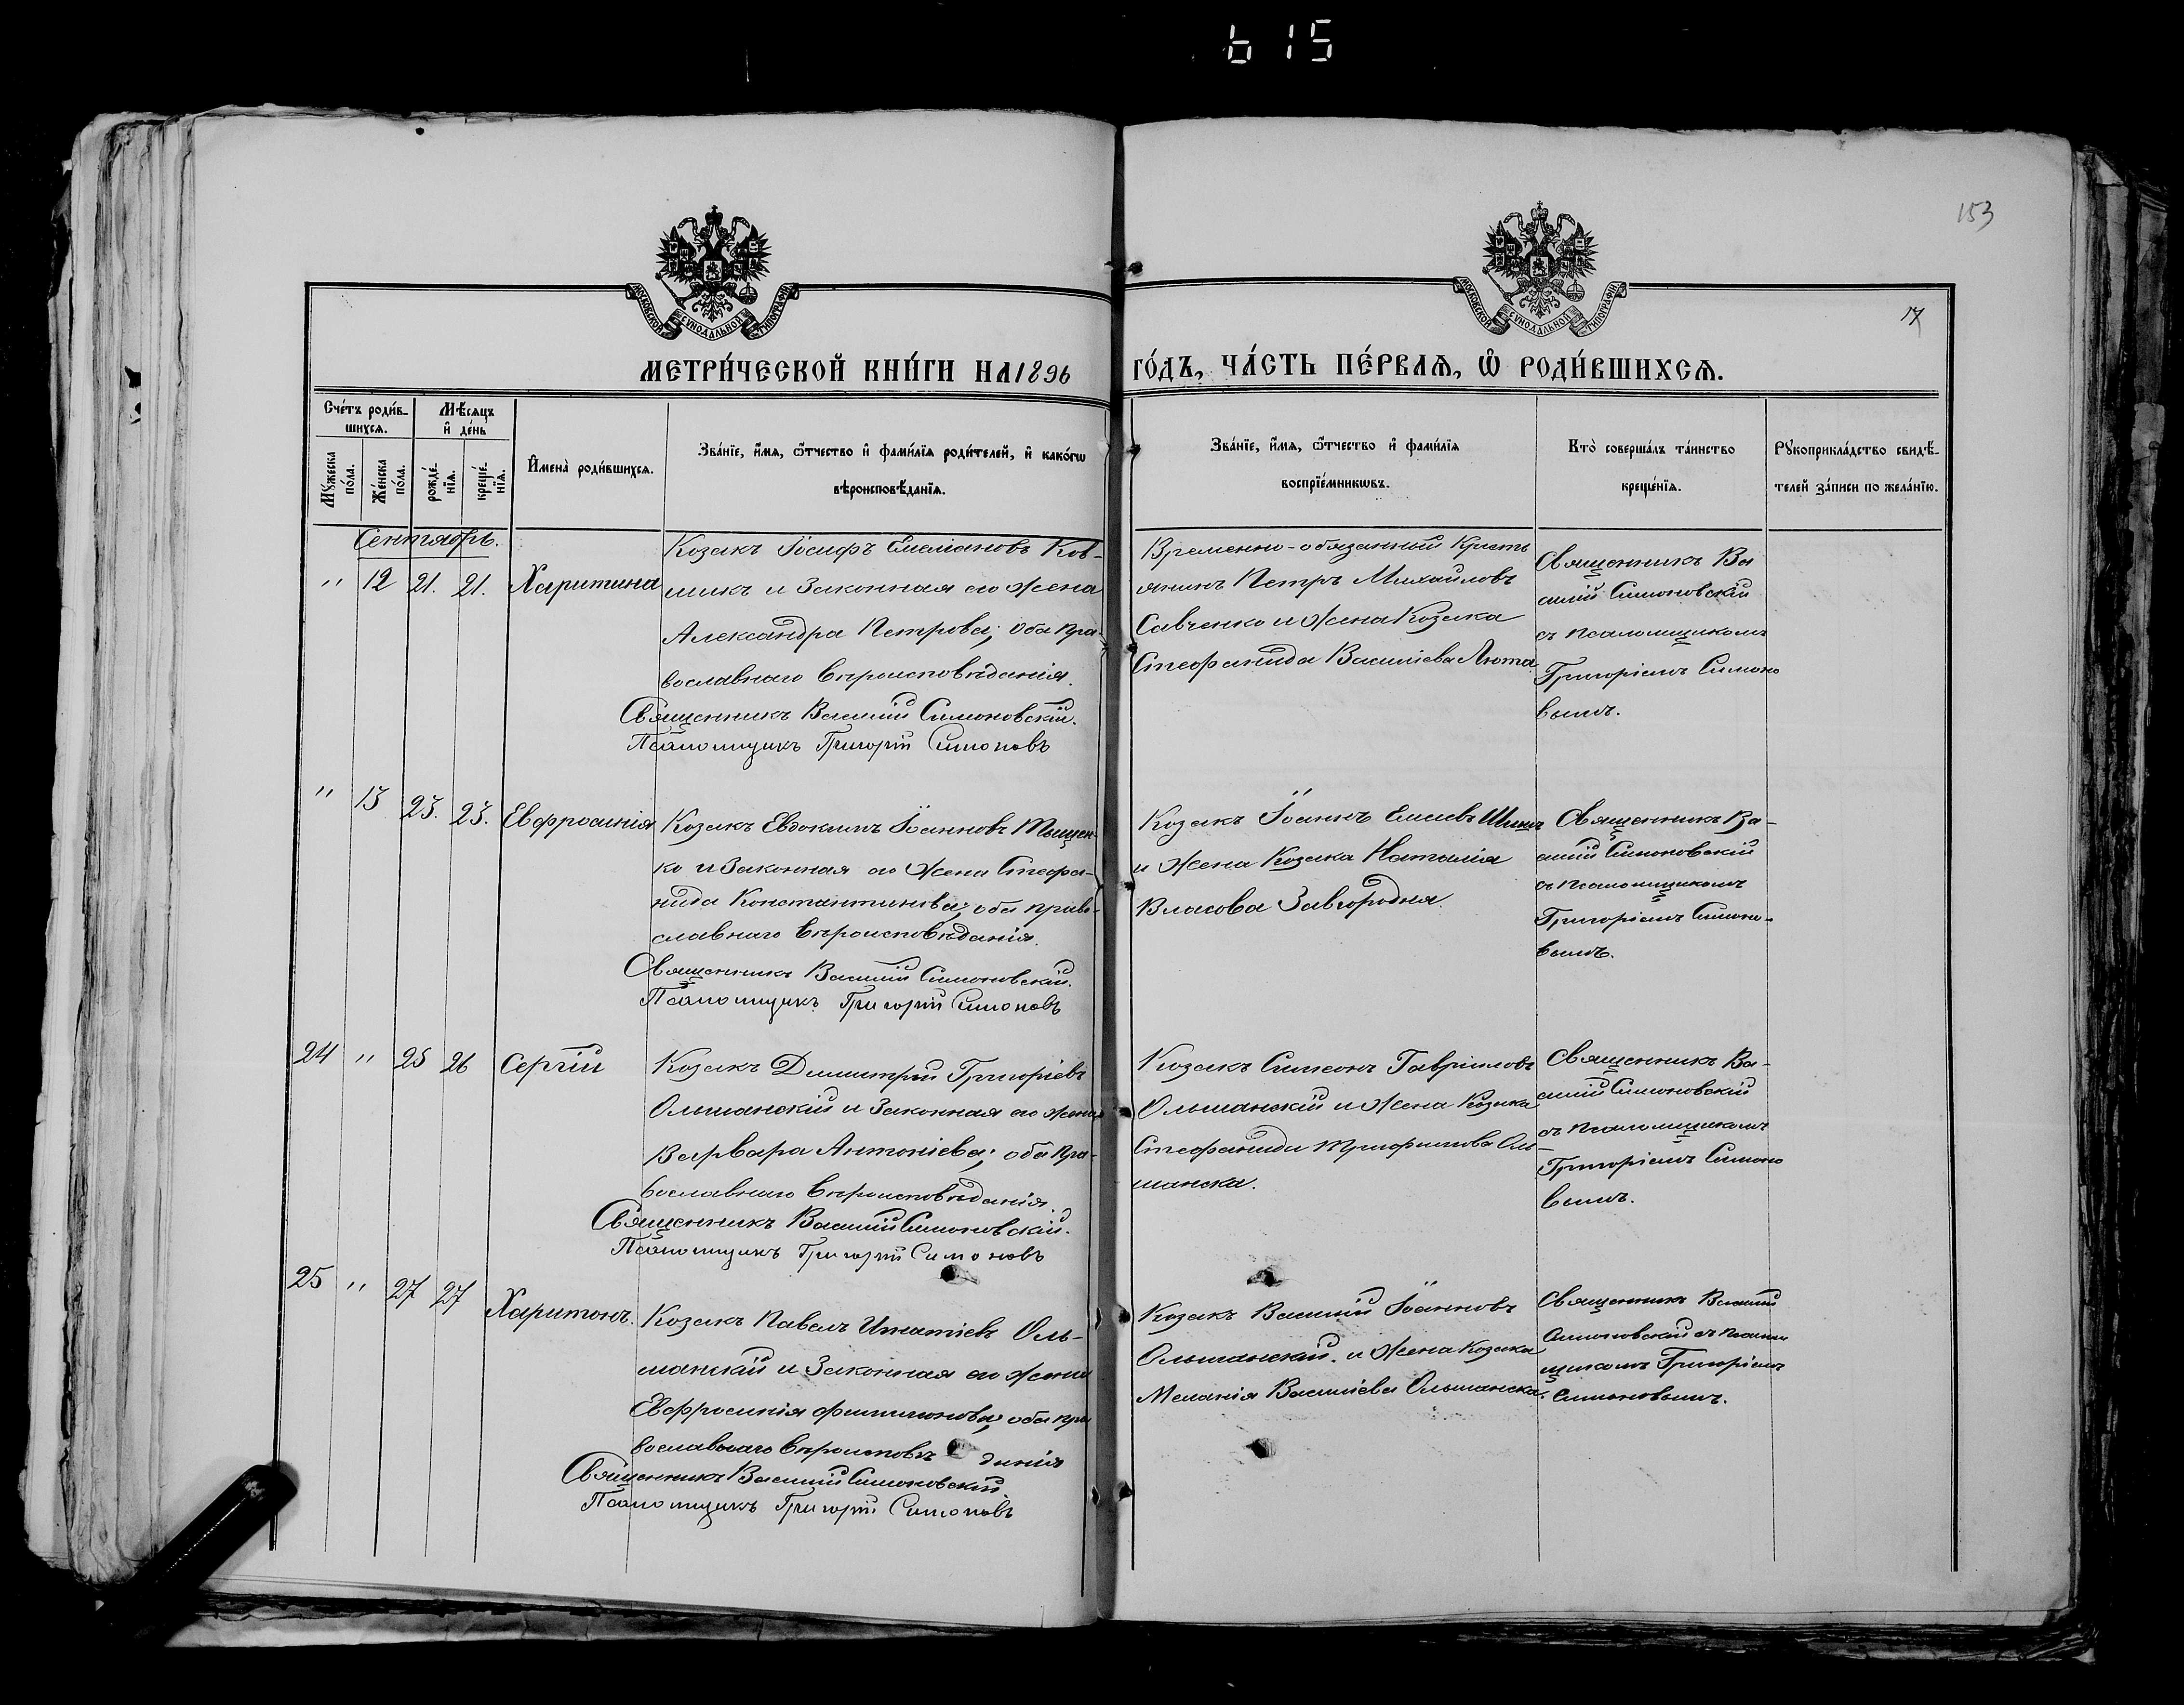 615
153
17
МОСКОВСКОЙ СѴНОДАЛЬНОЙ ТИПОГРАФІИ
МОСКОВСКОЙ СѴНОДАЛЬНОЙ ТИПОГРАФІИ
МЕТРИ́ЧЕСКОЙ КНИ́ГИ НА 1896 ГО́ДЪ, ЧА́СТЬ ПЕ́РВАѦ, Ѡ҆ РОДИ́ВШИХСѦ.
Сче́тъ роди́в-
шихсѧ.
Мѣ́сѧцъ
и҆ де́нь
Мꙋ́жеска
по́ла.
Же́нска
по́ла.
рожде́-
нїѧ.
креще́-
нїѧ.
И҆мена̀ роди́вшихсѧ.
Зва́нїе, и҆́мѧ, ѻ҆́тчество и҆ фами́лїѧ роди́телей, и҆ како́гѡ
вѣроисповѣ́данїѧ.
Зва́нїе, и҆́мѧ, ѻ҆́тчество и҆ фами́лїѧ
воспрїе́мникѡвъ.
Кто̀ соверша́лъ та́инство
креще́нїѧ.
Рꙋкоприкла́дство свидѣ́-
телей за́писи по жела́нїю.
Сентябрь.
" 12 21. 21. Харитина
Козакъ Іосифъ Емеліановъ Ков-
и Законная его жена
Александра Петрова; оба пра-
вославнаго вѣроисповѣданія.
Священникъ Василій Симоновскій.
Псаломщикъ Григорій Симоновъ
Временно-обязанный Кресть
янинъ Петръ Михайловъ
Савченко и жена Козака
Стефанида Василіева Люта.
Священникъ Ва
силій Симоновскій
съ псаломщикомъ
Григоріемъ Симоно
вымъ.
" 13 23. 23. Евфросинія
Козакъ Евдокимъ Іоанновъ Тыщен-
ко и Законная его жена Стефа-
нида Константинова; оба право-
славнаго вѣроисповѣданія.
Священникъ Василій Симоновскій.
Псаломщикъ Григорій Симоновъ
Козакъ Іоаннъ
и жена Козака Наталія
Власова Завгородня.
Священникъ Ва-
силій Симоновскій
съ псаломщикомъ
Григоріемъ Симоно-
вымъ.
24 " 25 26 Сергій
Козакъ Димитрій Григоріевъ
Ольшанскій и Законная его жена
Варвара Антоніева; оба пра-
вославнаго вѣроисповѣданія.
Священникъ Василій Симоновскій.
Псаломщикъ Григорій Симоновъ
Козакъ Симеонъ Гавріиловъ
Ольшанскій и жена Козака
Стефанида Оль-
шанска.
Священникъ Ва-
силій Симоновскій
съ псаломщикомъ
Григоріемъ Симоно
вымъ.
25 " 27 27 Харитонъ.
Козакъ Павелъ Игнатіевъ Оль-
шанскій и Законная его жена
Евфросинія Филимонова; оба пра
вославнаго вѣроисповѣ данія
Священникъ Василій Симоновскій
Псаломщикъ Григорій Симоновъ
Козакъ Василій Іоанновъ
Ольшанскій. и жена Козака
Меланія Василіева Ольшанска.
Священникъ Василій
Симоновскій съ псалом
щикомъ Григоріемъ
Симоновымъ.